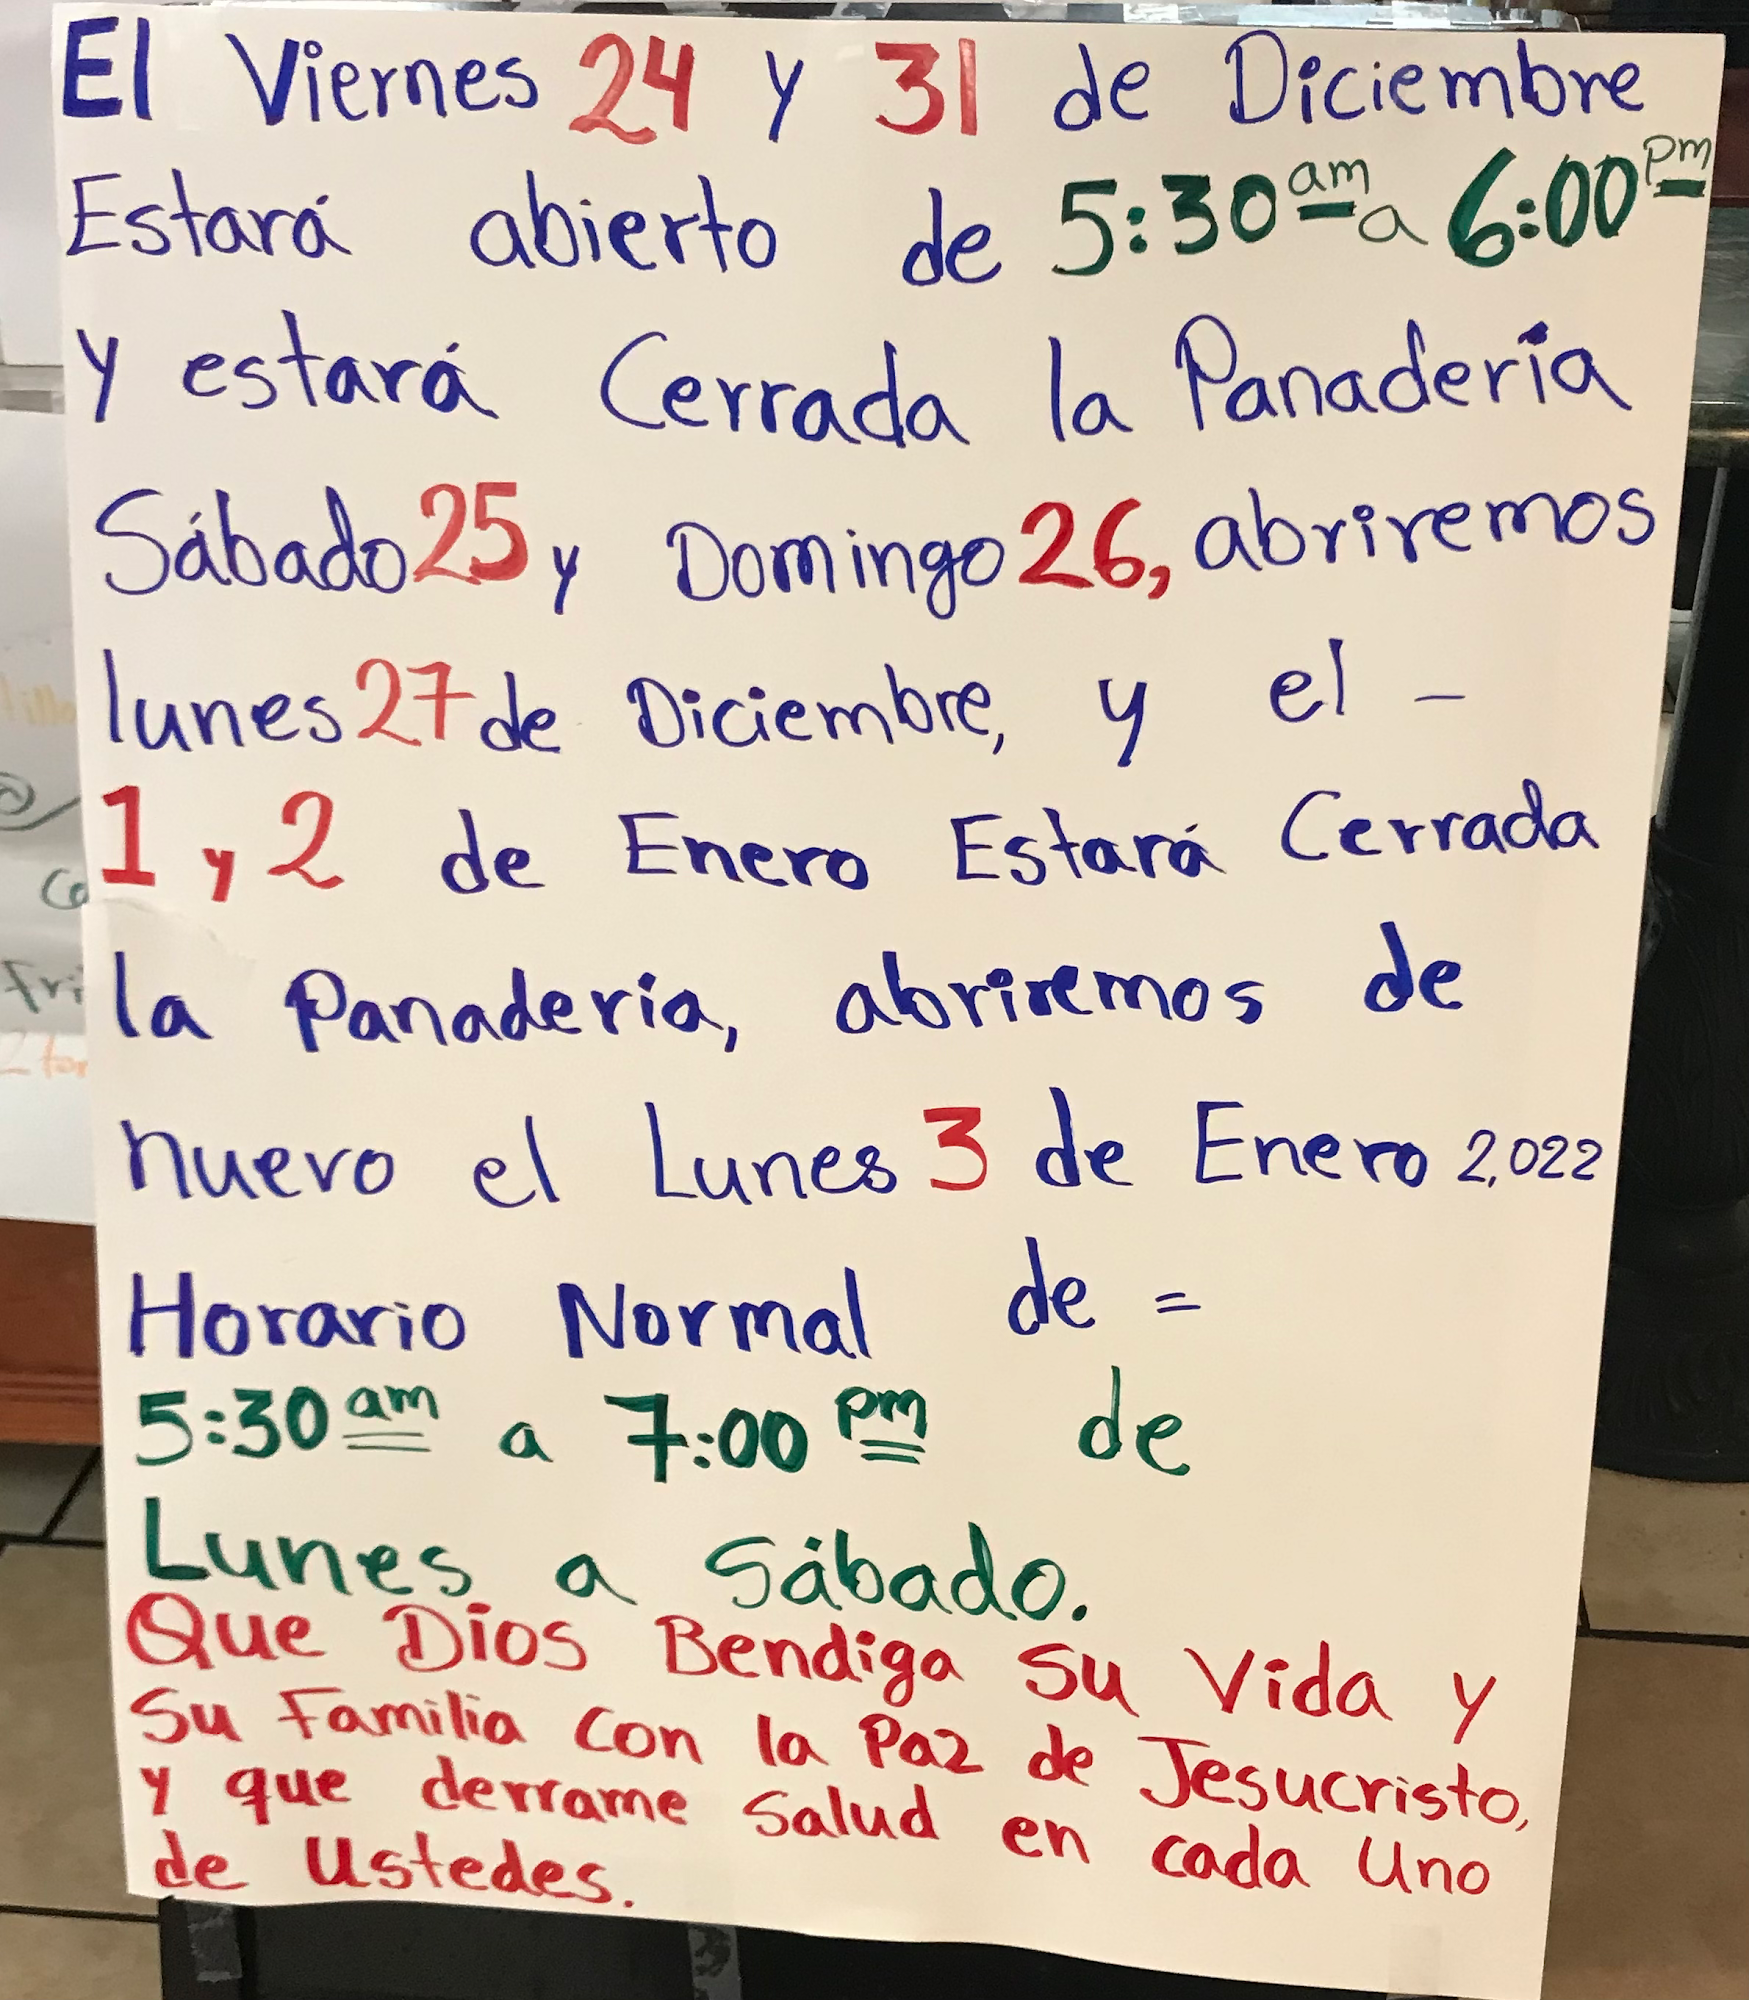 El Viernes 24 y 31 de Diciembre
Estará abierto de 5:30 am a 6:00 pm
y estará Cerrada la Panadería
Sábado 25 y Domingo 26, abriremos
lunes 27 de Diciembre, y el -
1 y 2 de Enero Estará Cerrada
la Panadería, abriremos de
nuevo el Lunes 3 de Enero 2,022
Horario Normal de =
5:30 am a 7:00 pm de
Lunes a Sábado.
Que Dios Bendiga su Vida y
su Familia con la Paz de Jesucristo,
y que derrame salud en cada uno
de ustedes.